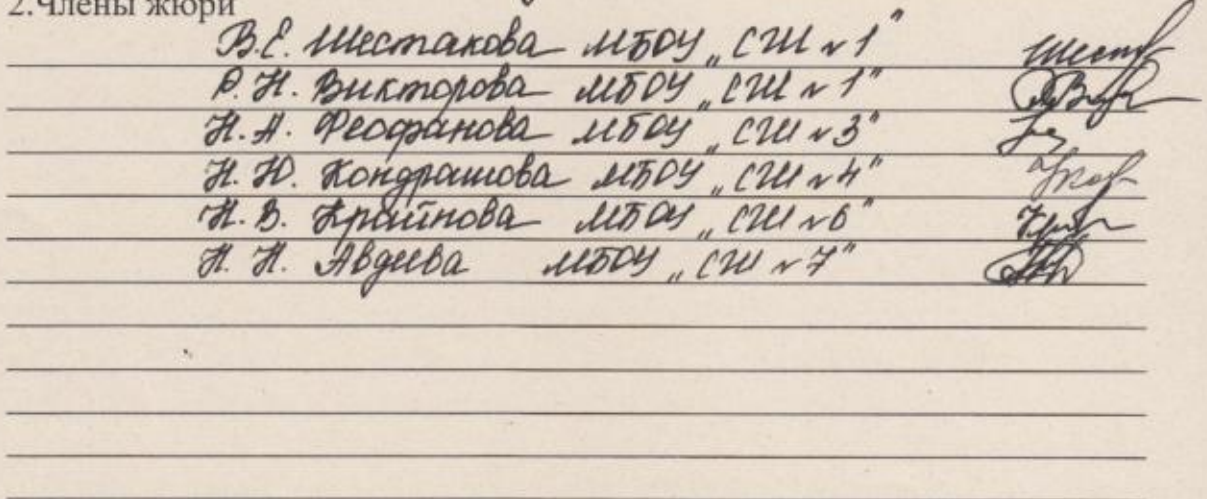 2.Члены жюри
В.Е. Шестакова МБОУ „СШ №1"
О.Н. Викторова МБОУ „СШ №1"
Н.А. Феофанова МБОУ „СШ №3"
Н.Ю. Кондрашова МБОУ „СШ №4"
Н.В. Крайнова МБОУ „СШ №6"
Н.Н. Авдеева МБОУ „СШ №7"